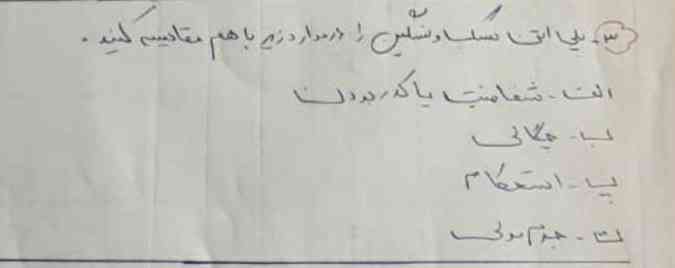 ۳- پلی اتن سبک و سنگین را در موارد زیر با هم مقایسه کنید.
الف - شفافیت یا کدر بودن
ب - چگالی
پ - استحکام
ت - جرم مولی